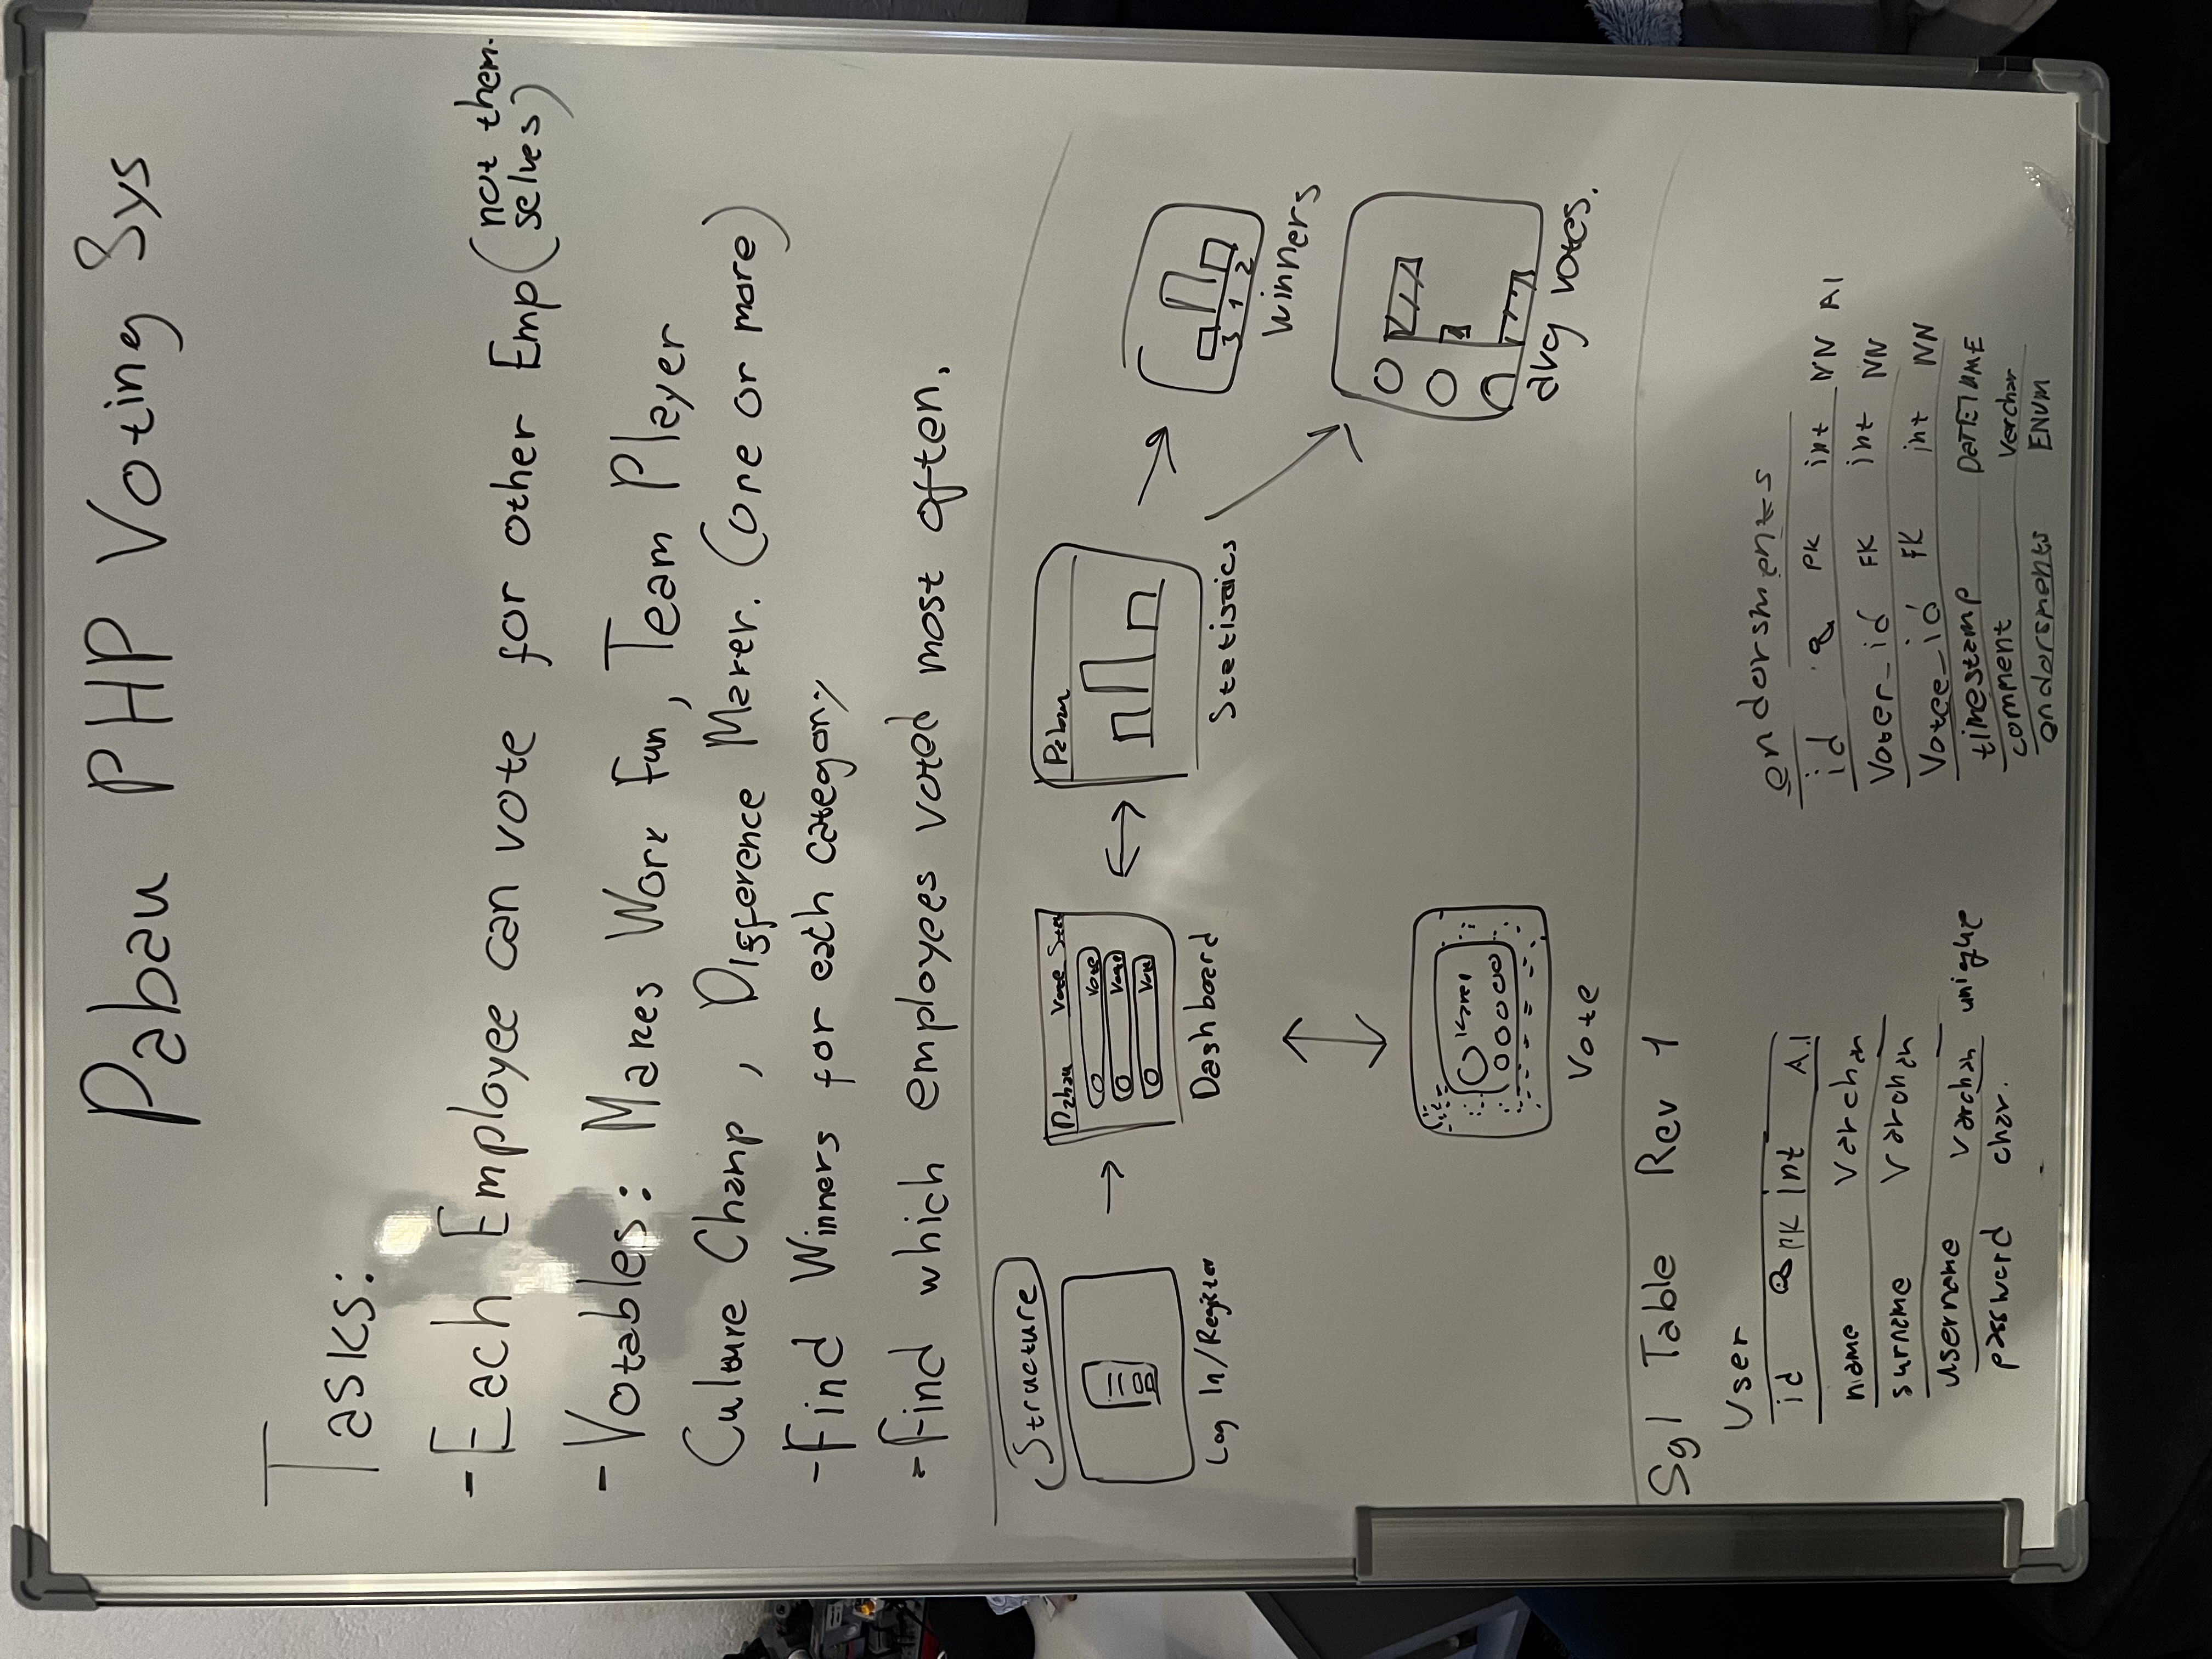 Pabau PHP Voting Sys
Tasks:
- Each Employee can vote for other Emp (not them-
selves)
- Votables: Makes Work Fun, Team Player
Culture Champ, Difference Maker. (One or more)
- Find Winners for each category
- Find which employees voted most often.
Structure
Pabau Vote Stat
Vote
Vote
Vote
Pabau
Log In/Register
Dashboard
Statistics
3 1 2
Winners
Vote
avg votes.
Sql Table Rev 1
User
id PK int A.I
name Varchar
surname Varchar
username Varchar unique
password char.
endorsments
id PK int NN AI
Voter_id FK int NN
Votee_id FK int NN
timestamp DATETIME
comment Varchar
endorsments ENUM